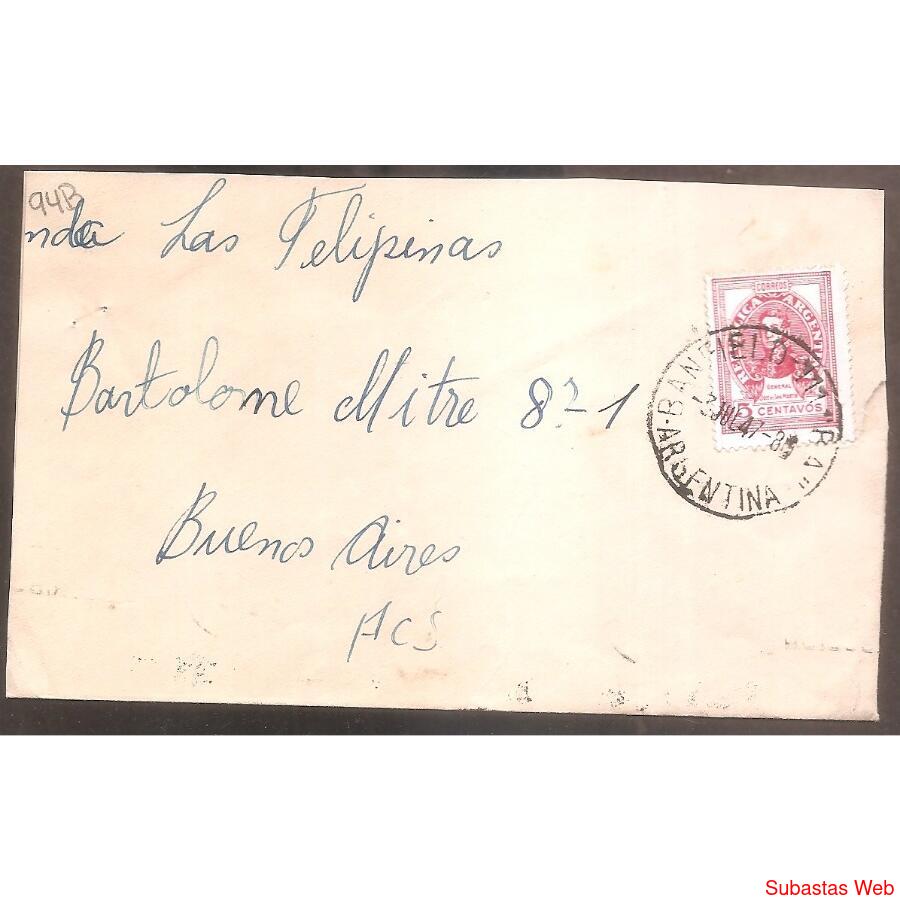 94B
nda Las Felipinas
Bartolome Mitre
Buenos Aires
ACS
CORREOS
REPUBLICA ARGENTINA
GENERAL
5 CENTAVOS
BANFIELD
JUL 47-8
ARGENTINA
Subastas Web